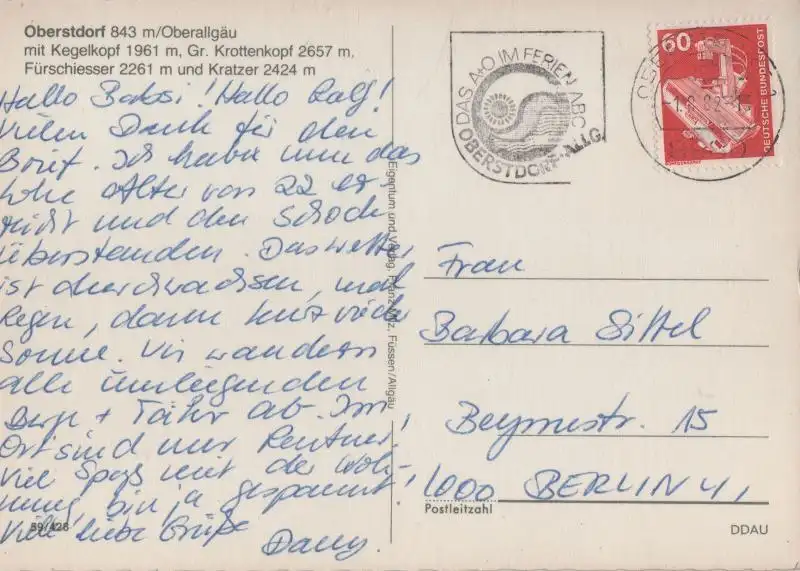 Oberstdorf 843 m/Oberallgäu
mit Kegelkopf 1961 m, Gr. Krottenkopf 2657 m,
Fürschiesser 2261 m und Kratzer 2424 m
Hallo Babsi! Hallo Ralf!
Vielen Dank für den
Brief. Ich habe nun das
hohe Alter von 22 er-
reicht und den Schock
überstanden. Das Wetter
ist durchwachsen, mal
Regen, dann kurz wieder
Sonne. Wir wandern
alle umliegenden
Berge + Täler ab. Im
Ort sind nur Rentner.
Viel Spaß mit der Woh-
nung, bin ja gespannt.
Viele liebe Grüße
Dany.
59/428
Eigentum und Verlag, Franz Milz, Füssen/Allgäu
DAS A+O IM FERIEN-ABC
OBERSTDORF-ALLG.
60
DEUTSCHE BUNDESPOST
Frau
Barbara Sittel
Beymestr. 15
1000 BERLIN 41
Postleitzahl
DDAU